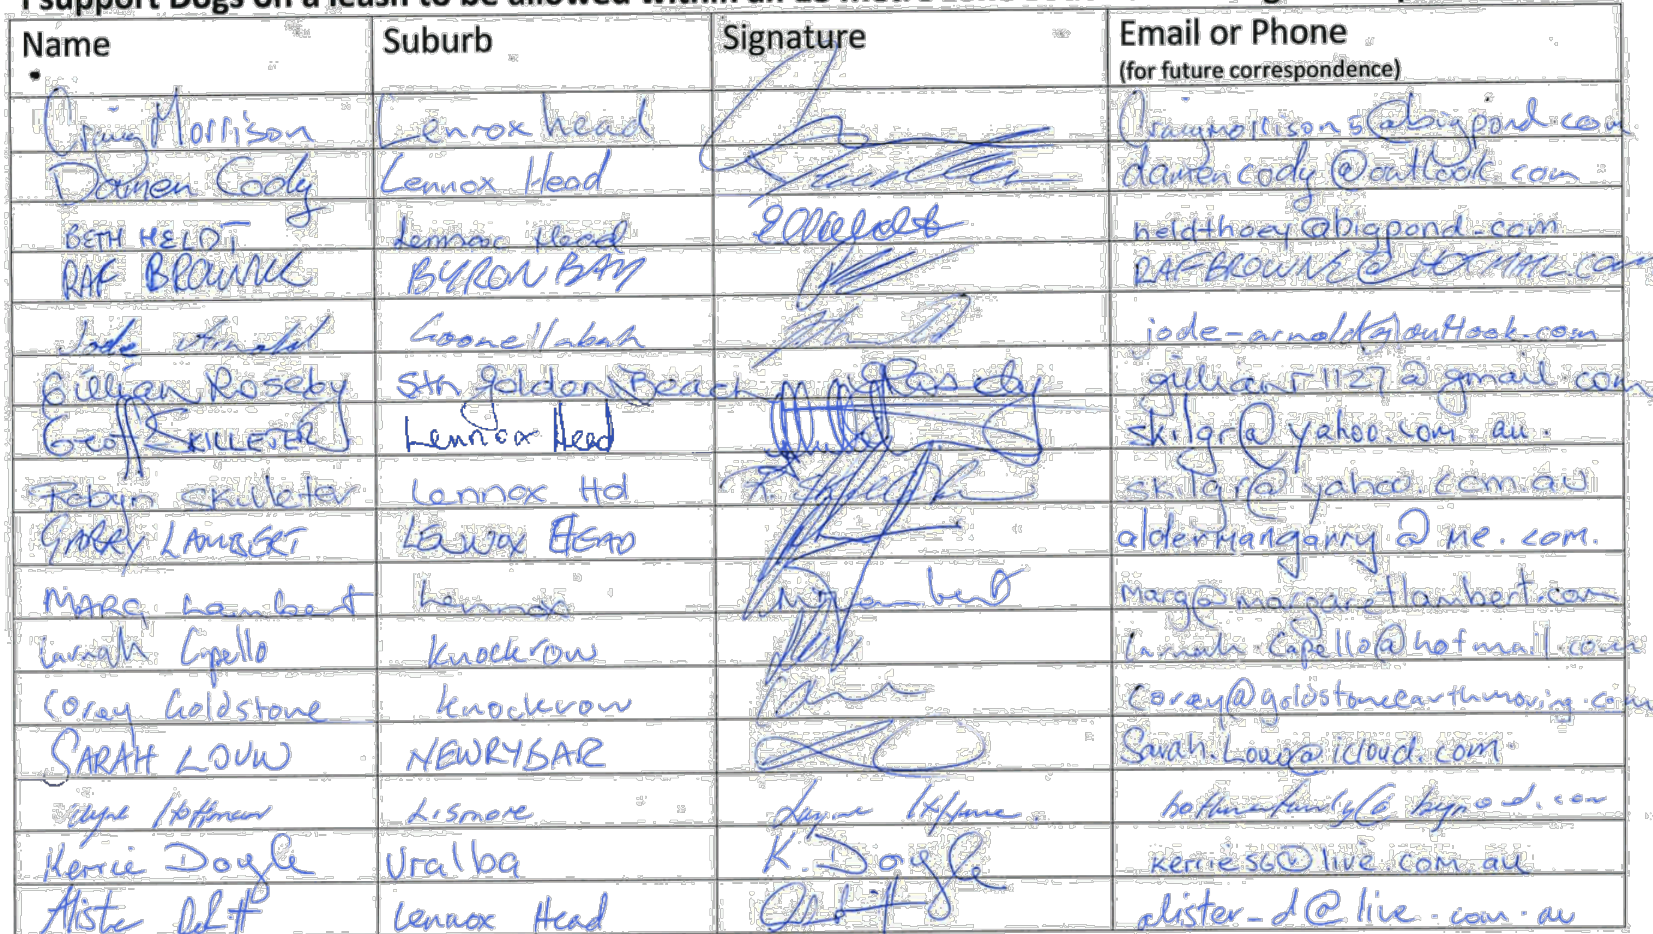 I support Dogs on a leash to be allowed within
Name Suburb Signature Email or Phone
(for future correspondence)
Craig Morrison Lennox head Craigmorrison5@bigpond.com
Damien Cody Lennox Head damiencody@outlook.com
BETH HELDT Lennox Head heldthoey@bigpond.com
RAF BROWNE BYRON BAY RAFBROWNE@HOTMAIL.COM
Jode Arnold Goonellabah jode-arnold@outlook.com
Gillian Roseby Sth Golden Beach GRoseby gillianr1127@gmail.com
Geoff SKILLETER Lennox Head skilgr@yahoo.com.au.
Robyn Skilleter Lennox Hd skilgr@yahoo.com.au
GARRY LAMBERT LENNOX HEAD aldermangarry@me.com.
MARG Lambert Lennox marg@margaretlambert.com
Larnah Capello Knockrow Larnah Capello@hotmail.com
Corey Goldstone Knockrow Corey@goldstoneearthmoving.com
SARAH LOUW NEWRYBAR Sarah.Louw@icloud.com
Lismore
Kerrie Doyle Uralba K. Doyle kerrie56@live.com.au
Alister Lennox Head alister_d@live.com.au